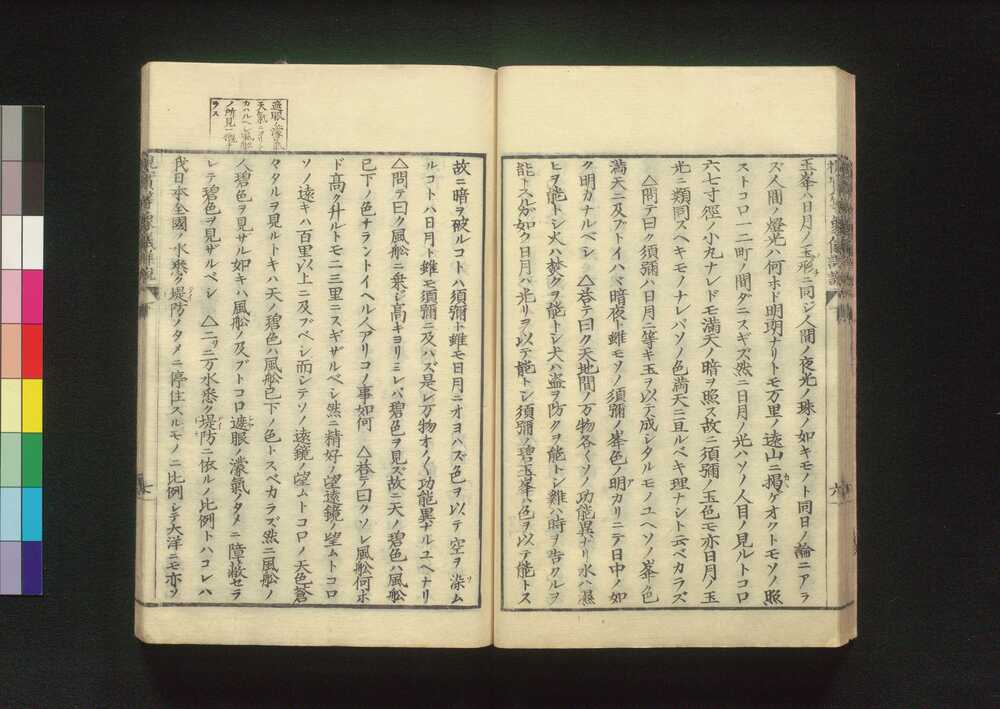 玉峯ハ日月ノ玉形ニ同ジ人間ノ夜光ノ珠ノ如キモノト同日ノ論ニアラ
ズ人間ノ燈光ハ何ホド明朗ナリトモ万里ノ遠山ニ掲ゲオクトモソノ照
ストコロ一二町ノ間ダニスギズ然ニ日月ノ光ハソノ人目ノ見ルトコロ
六七寸徑ノ小丸ナレドモ満天ノ暗ヲ照ス故ニ須彌ノ玉色モ亦日月ノ玉
光ニ類同スヘキモノナレバソノ色満天ニ亘ルベキ理ナシト云ベカラズ
△問テ曰ク須彌ハ日月ニ等キ玉ヲ以テ成シタルモノユヘソノ峯ノ色
満天ニ及ブトイハヾ暗夜ト雖モソノ須彌ノ峯色ノ明カリニテ日中ノ如
ク明カナルベシ △答テ曰ク天地間ノ万物各〱ソノ功能異ナリ水ハ濕
ヒヲ能トシ火ハ焚クヲ能トシ犬ハ盗ヲ防クヲ能トシ雞ハ時ヲ告クルヲ
能トスルガ如ク日月ハ光リヲ以テ能トシ須彌ノ碧玉峯ハ色ヲ以テ能トス
六
故ニ暗ヲ破ルコトハ須彌ト雖モ日月ニオヨハズ色ヲ以テ空ヲ染ム
ルコトハ日月ト雖モ須彌ニ及ハズ是レ万物オノ〱功能異ナルユヘナリ
△問テ曰ク風舩ニ乗シ高キヨリミレバ碧色ヲ見ズ故ニ天ノ碧色ハ風舩
已下ノ色チラントイヘル人アリコノ事如何 △答テ曰クソレ風舩何ホ
ド高ク升ルトモ二三里ニスギザルベシ然ニ精好ノ望遠鏡ノ望ムトコロ
ソノ遠キハ百里以上ニ及ブベシ而シテソノ遠鏡ノ望ムトコロノ天色蒼
々タルヲ見ルトキハ天ノ碧色ハ風舩已下ノ色トスベカラズ然ニ風舩ノ
人碧色ヲ見サル如キハ風舩ノ及ブトコロ遮眼ノ濛氣ノタメニ障蔽セラ
レテ碧色ヲ見ザルベシ △二ツニ万水悉ク堤防ニ依ルノ比例トハコレハ
我日本全國ノ水悉ク堤防ノタメニ停住スルモノニ比例シテ大洋ニモ亦ソ
遮眼ノ濛氣
天氣ニヨリテ
カハルベシ風舩
ノ所見一准ナ
ラス
七